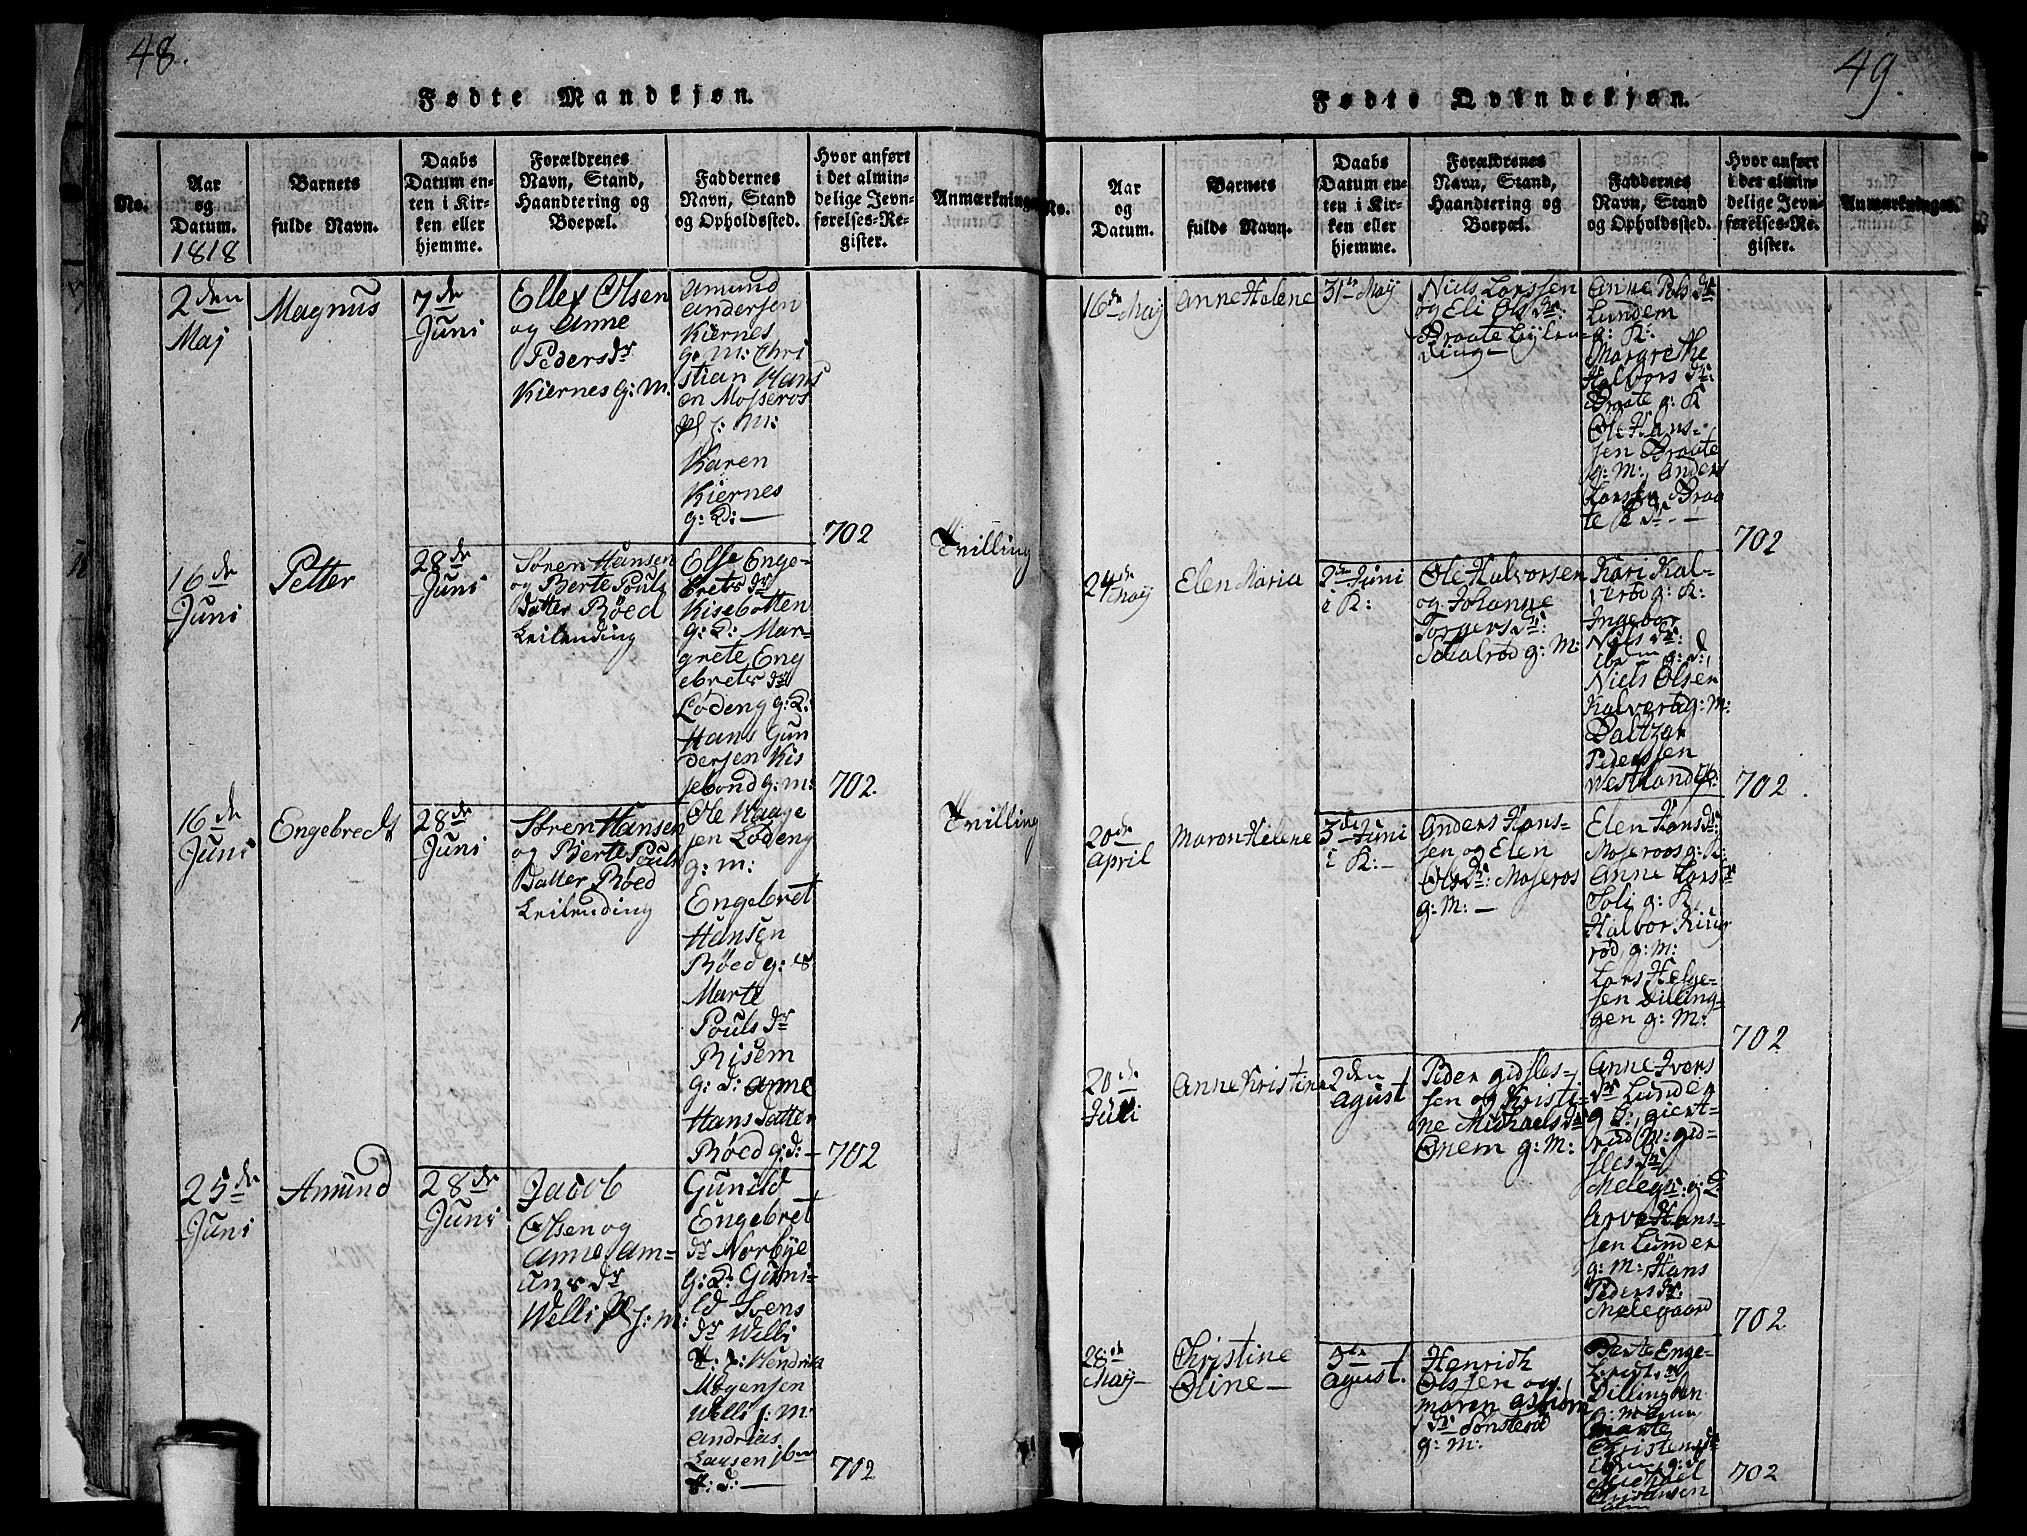 48.
Fødte Mandkjøn.
No.
Aar
og
Datum.
1818
Barnets
fulde Navn.
Daabs
Datum en-
ten i Kir-
ken eller
hjemme.
Forældrenes
Navn, Stand,
Haandtering og
Boepæl.
Faddernes
Navn, Stand
og Opholdssted.
Hvor anført
i det almin-
delige Jevn-
førelses-Re-
gister.
Anmærkninger
2den
Maj
Magnus
7de
Juni
Ellef Olsen
og Anne
Pedersdr
Kiernes g: M.
Amund
Andersen
Kiernes
g: M: Chri
stian Hans
en Mosseros
g: M:
Karen
Kiernes
g: D: —
702
16de
Juni
Petter
28de
Juni
Søren Hansen
og Berte Pouls
Datter Røed
Leilending
Else Enge-
bretsdr
Kisebotten
g: D: Mar-
grete Eng
ebretsdr
Lødeng g: D:
Hans Gun
dersen Kis
sebond g: m:
702.
Tvilling
16de
Juni
Engebredt
28de
Juni
Søren Hansen
og Berte Pouls
Datter Røed
Leilending
Ole Haage
sen Lødeng
g: m:
Engebret
Hansen
Røed g: 8
Marte
Poulsdr
Risem
g: d: Anne
Hans Datter
Røed g: d: —
702
Tvilling
25de
Juni
Amund
28de
Juni
Jacob
Olsen og
Anne Am-
unsdr
Welli g: m:
Gunild
Engebret
dr Norbye
g: D: Guni-
ld Svens
dr Welli
Hendrik
Mogensen
Welli g: M:
Andrias
Larsen ibm
d: —
702
49.
Fødte Qvindekjøn.
No.
Aar
og
Datum.
Barnets
fulde Navn.
Daabs
Datum en-
ten i Kir-
ken eller
hjemme.
Forældrenes
Navn, Stand,
Haandtering og
Boepæl.
Faddernes
Navn, Stand
og Opholdssted.
Hvor anført
i det almin-
delige Jevn-
førelses-Re-
gister.
Anmærkninger.
16de Maij
Anne Helene
31te Maij
Niels Larssen
og Eli Olsdr:
Braate Leylen-
ding —
Anne Polsdr
Lundem
g: K:
Margrethe
Halvorsdr:
Braate g: K
Ole Hans-
sen Braate
g: M: Anders
Larssen Braa
te
702
24de
Maij
Elen Maria
2den Juni
i K:
Ole Halvorsen
og Johanne
Torgersdr:
Skalrød g: M:
Kari Kal-
g: K:
Ingebor
Nielsdr:
ibm g: d:
Niels Olsen
g: M:
Baltzar
Pederssen
Westland
702.
20de
April
Maren Helene
3die Juni
i K: —
Anders Hans-
sen og Elen
Olsdr: Moseros
g: M: —
Elen Hansdr:
Moseroos g: K:
Anne Larsdr
Soli g: K
Halvor Ring
rød g: M:
Lars Helge-
sen Dilling-
gen g: M:
702
20de
Juli
Anne Kristine
2den
Agust
Peder Gidsles-
sen og Kristi-
ne Michaelsdr
Onem g: M:
Anne Ivers
dr Lunder
g: D: Giert-
rud M: Gid-
slesdr
Melegr: g: D
Arve Hans-
sen Lunder
g: M: Hans
Pedersdr:
Melegaard
702
28de
Maij
Christine
Oline —
5te
Agust.
Henrich
Olssen og
Maren Asbiørn
dr Sønsterød
g: M:
Berte Enge-
bredtsdr
Dillingøen
g: M
Marte
Christensdr
ibm g: d
Michael
702